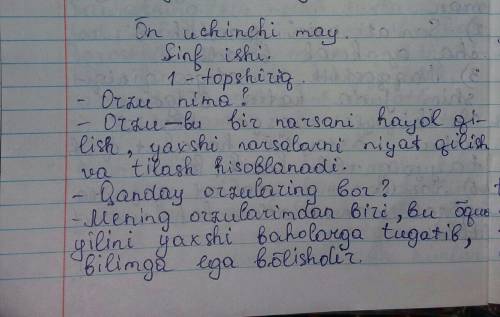 Ōn uchinchi may.
Sinf ishi.
1-topshiriq.
- Orzu nima?
- Orzu-bu bir narsani hayol qi-
lish, yaxshi narsalarni niyat qilish
va tilash hisoblanadi.
- Qanday orzularing bor?
- Mening orzularimdan biri, bu ōquv
yilini yaxshi baholarga tugatib,
bilimga ega bōlishdir.